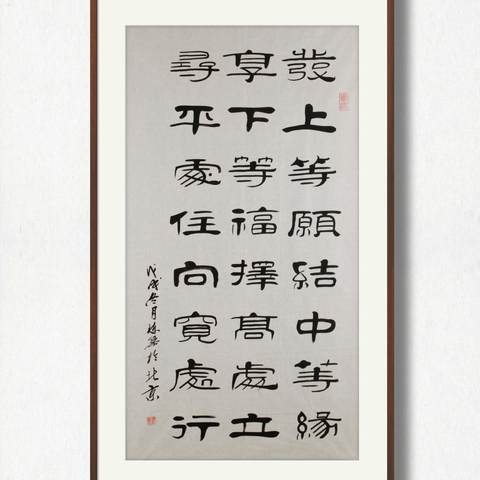 發上等願結中等緣
享下等福擇高處立
尋平處住向寬處行
戊戌冬月
於北京